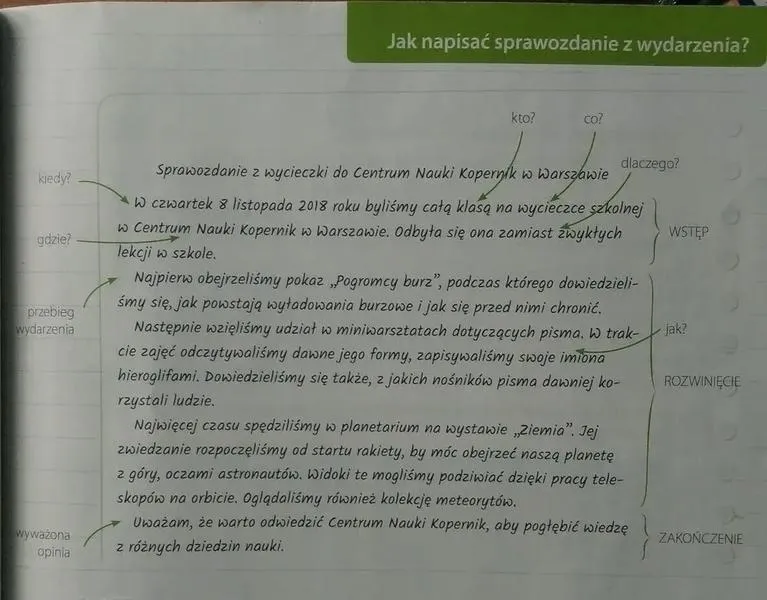 Jak napisać sprawozdanie z wydarzenia?
kto?
co?
dlaczego?
kiedy?
gdzie?
Sprawozdanie z wycieczki do Centrum Nauki Kopernik w Warszawie
W czwartek 8 listopada 2018 roku byliśmy całą klasą na wycieczce szkolnej
w Centrum Nauki Kopernik w Warszawie. Odbyła się ona zamiast zwykłych
lekcji w szkole.
WSTĘP
przebieg
wydarzenia
Najpierw obejrzeliśmy pokaz „Pogromcy burz”, podczas którego dowiedzieli-
śmy się, jak powstają wyładowania burzowe i jak się przed nimi chronić.
Następnie wzięliśmy udział w miniwarsztatach dotyczących pisma. W trak-
cie zajęć odczytywaliśmy dawne jego formy, zapisywaliśmy swoje imiona
hieroglifami. Dowiedzieliśmy się także, z jakich nośników pisma dawniej ko-
rzystali ludzie.
jak?
ROZWINIĘCIE
Najwięcej czasu spędziliśmy w planetarium na wystawie „Ziemia”. Jej
zwiedzanie rozpoczęliśmy od startu rakiety, by móc obejrzeć naszą planetę
z góry, oczami astronautów. Widoki te mogliśmy podziwiać dzięki pracy tele-
skopów na orbicie. Oglądaliśmy również kolekcję meteorytów.
wyważona
opinia
Uważam, że warto odwiedzić Centrum Nauki Kopernik, aby pogłębić wiedzę
z różnych dziedzin nauki.
ZAKOŃCZENIE